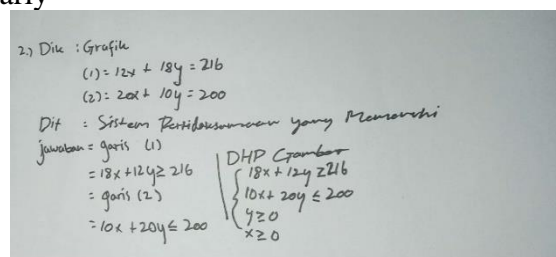 arry
2.) Dik : Grafik
(1) = 12x + 18y = 216
(2) = 20x + 10y = 200
Dit : Sistem Pertidaksamaan yang Memenuhi
jawaban = garis (1)
= 18x + 12y ≥ 216
= garis (2)
= 10x + 20y ≤ 200
DHP Gambar
18x + 12y ≥ 216
10x + 20y ≤ 200
y ≥ 0
x ≥ 0